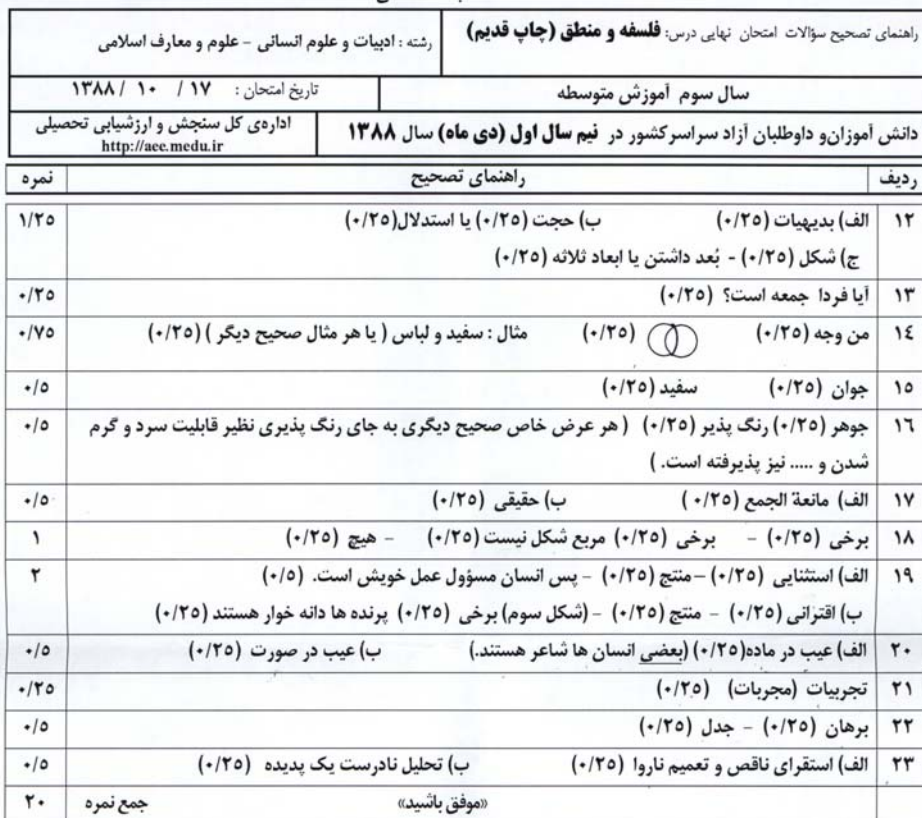 راهنمای تصحیح سؤالات امتحان نهایی درس: فلسفه و منطق (چاپ قدیم)
رشته : ادبیات و علوم انسانی - علوم و معارف اسلامی
سال سوم آموزش متوسطه
تاریخ امتحان : ۱۷ / ۱۰ / ۱۳۸۸
دانش آموزان و داوطلبان آزاد سراسرکشور در نیم سال اول (دی ماه) سال ۱۳۸۸
اداره‌ی کل سنجش و ارزشیابی تحصیلی
http://aee.medu.ir
ردیف راهنمای تصحیح نمره
۱۲ الف) بدیهیات (۰/۲۵) ب) حجت (۰/۲۵) یا استدلال(۰/۲۵) ۱/۲۵
ج) شکل (۰/۲۵) - بُعد داشتن یا ابعاد ثلاثه (۰/۲۵)
۱۳ آیا فردا جمعه است؟ (۰/۲۵) ۰/۲۵
۱۴ من وجه (۰/۲۵) (۰/۲۵) مثال : سفید و لباس ( یا هر مثال صحیح دیگر ) (۰/۲۵) ۰/۷۵
۱۵ جوان (۰/۲۵) سفید (۰/۲۵) ۰/۵
۱۶ جوهر (۰/۲۵) رنگ پذیر (۰/۲۵) ( هر عرض خاص صحیح دیگری به جای رنگ پذیری نظیر قابلیت سرد و گرم ۰/۵
شدن و ..... نیز پذیرفته است. )
۱۷ الف) مانعة الجمع (۰/۲۵ ) ب) حقیقی (۰/۲۵) ۰/۵
۱۸ برخی (۰/۲۵) - برخی (۰/۲۵) مربع شکل نیست (۰/۲۵) - هیچ (۰/۲۵) ۱
۱۹ الف) استثنایی (۰/۲۵) – منتج (۰/۲۵) - پس انسان مسؤول عمل خویش است. (۰/۵) ۲
ب) اقترانی (۰/۲۵) - منتج (۰/۲۵) - (شکل سوم) برخی (۰/۲۵) پرنده ها دانه خوار هستند (۰/۲۵)
۲۰ الف) عیب در ماده(۰/۲۵) (بعضی انسان ها شاعر هستند.) ب) عیب در صورت (۰/۲۵) ۰/۵
۲۱ تجربیات (مجربات) (۰/۲۵) ۰/۲۵
۲۲ برهان (۰/۲۵) - جدل (۰/۲۵) ۰/۵
۲۳ الف) استقرای ناقص و تعمیم ناروا (۰/۲۵) ب) تحلیل نادرست یک پدیده (۰/۲۵) ۰/۵
«موفق باشید» جمع نمره ۲۰